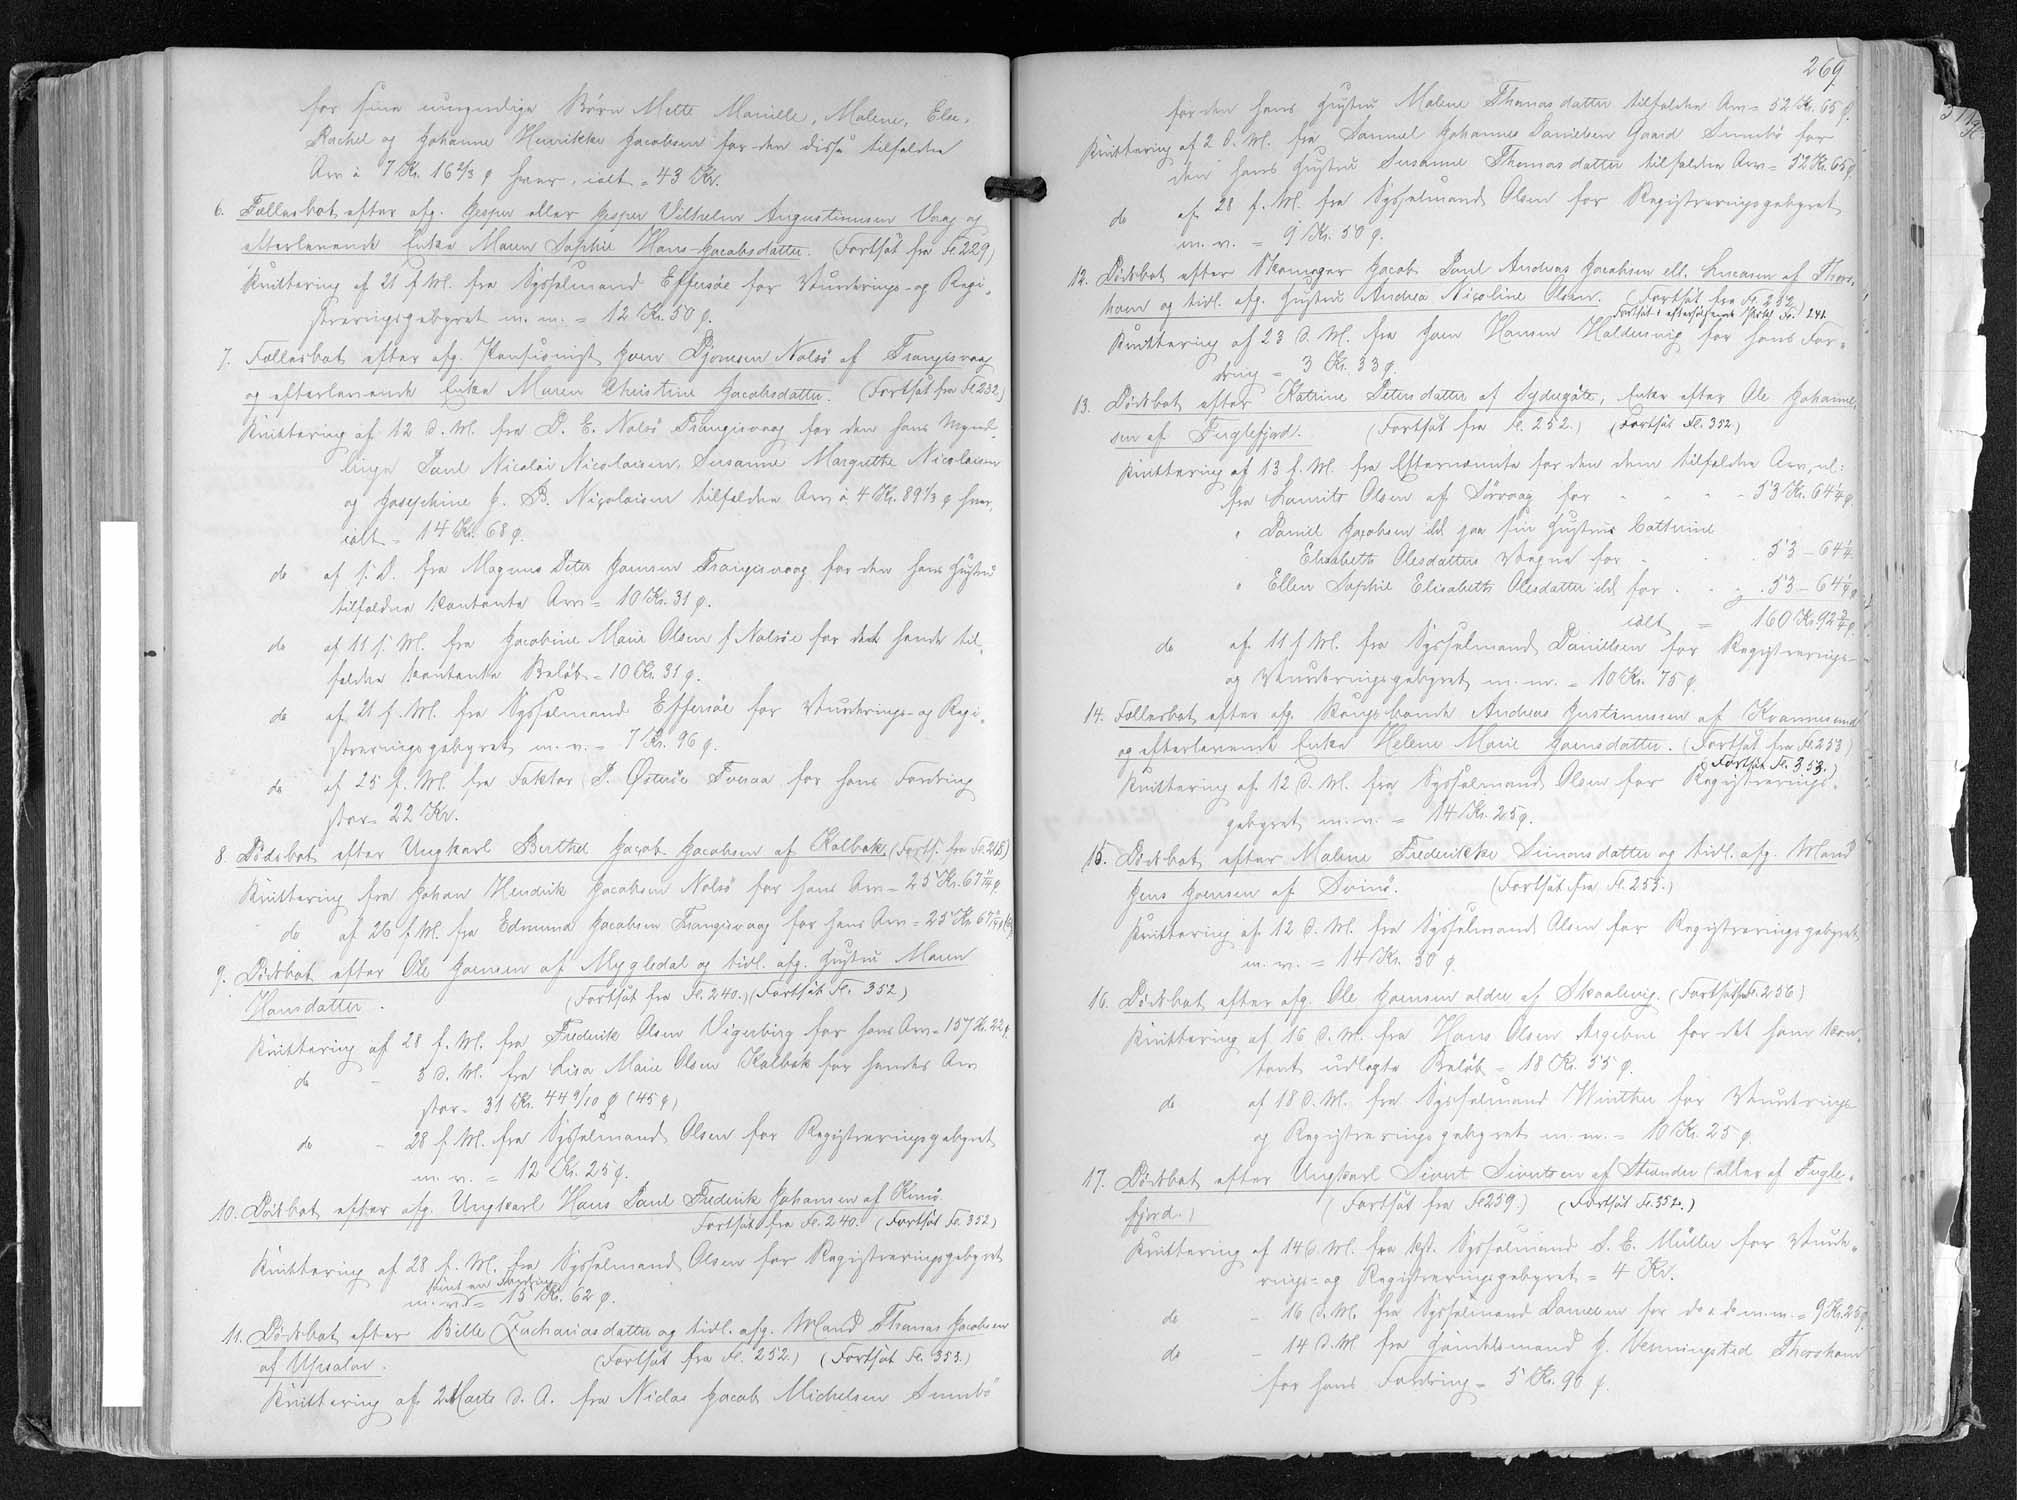 for sine umyndige Børn Mette Marielle, Malene, Else,
Rachel og Johanne Henrikke Jacobsen for den disse tilfaldne
Arv à 7 Kr. 16 2/3 ø hver, ialt = 43 Kr.
6. Fællesbot efter afg. Jesper eller Jesper Vilhelm Augustinussen Vaag og
efterlevende Enke Maren Sophie Hans-Jacobsdatter. (Fortsat fra Fl. 229)
Kvittering af 21 f. M. fra Sysselmand Effersøe for Vurderings- og Regi-
streringsgebyret m. m. = 12 Kr. 50 ø.
7. Fællesbot efter afg. Pensionist Joen Djonesen Nolsø af Trangisvaag
og efterlevende Enke Maren Christine Jacobsdatter. (Fortsat fra Fl. 232)
Kvittering af 12 d. M. fra D. E. Nolsø Trangisvaag for den hans Mynd-
linge Paul Nicolai Nicolaisen, Susanne Margrethe Nicolaisen
og Josephine J. B. Nicolaisen tilfaldne Arv à 4 Kr. 89 1/3 ø hver,
ialt = 14 Kr. 68 ø.
do af s. D. fra Magnus Peter Joensen Trangisvaag for den hans Hustru
tilfaldne kontante Arv = 10 Kr. 31 ø.
do af 11 f. M. fra Jacobine Marie Olsen f. Nolsøe for det hende til-
faldne kontante Beløb = 10 Kr. 31 ø.
do af 21 f. M. fra Sysselmand Effersøe for Vurderings- og Regi-
streringsgebyret m. v. = 7 Kr. 96 ø.
do af 25 f. M. fra Faktor P. Østerøe Tveraa for hans Fordring
stor = 22 Kr.
8. Dødsbot efter Ungkarl Berthel Jacob Jacobsen af Kalbak (Forts. fra Fl. 218)
Kvittering fra Johan Hendrik Jacobsen Nolsø for hans Arv = 25 Kr. 67
do af 26 f. M. fra Edmund Jacobsen Trangisvaag for hans Arv = 25 Kr. 67
9. Dødsbot efter Ole Joensen af Mygledal og tidl. afg. Hustru Maren
Hansdatter. (Fortsat fra Fl. 240.) (Fortsat Fl. 352)
Kvittering af 28 f. M. fra Frederik Olsen Vigerbirg for hans Arv = 157 Kr. 22 ø.
do - 3 d. M. fra Lisa Marie Olsen Kalbak for hendes Arv
stor = 31 Kr. 44 9/10 ø (45 ø)
do - 28 f. M. fra Sysselmand Olsen for Registreringsgebyret
m. v. = 12 Kr. 25 ø.
10. Dødsbot efter afg. Ungkarl Hans Paul Frederik Johansen af Kunø.
Fortsat fra Fl. 240. (Fortsat Fl. 352)
Kvittering af 28 f. M. fra Sysselmand Olsen for Registreringsgebyret
samt en Fordring
m. v. = 15 Kr. 62 ø.
11. Dødsbot efter Bille Zachariasdatter og tidl. afg. Mand Thomas Jacobsen
af Upsalar. (Fortsat fra Fl. 252.) (Fortsat Fl. 353.)
Kvittering af 2 Marts d. A. fra Niclas Jacob Michelsen Sumbø
269
for den hans Hustru Malene Thomasdatter tilfaldne Arv = 52 Kr. 65 ø.
Kvittering af 2 d. M. fra Samuel Johannes Danielsen Gaard Sumbø for
den hans Hustru Susanne Thomasdatter tilfaldne Arv = 52 Kr. 65 ø.
do af 28 f. M. fra Sysselmand Olsen for Registreringsgebyret
m. v. = 9 Kr. 50 ø.
12. Dødsbot efter Skomager Jacob Paul Andreas Jacobsen ell. Lucasen af Thors-
havn og tidl. afg. Hustru Andrea Nicoline Olsen. (Fortsat fra Fl. 252.)
Fortsat i efterfølgende Fl. 241.
Kvittering af 23 d. M. fra Joen Hansen Haldersvig for hans For-
dring = 3 Kr. 33 ø.
13. Dødsbot efter Katrine Petersdatter af Sydregøte, Enke efter Ole Johanne-
sen af Fuglefjord. (Fortsat fra Fl. 252.) (Fortsat Fl. 352)
Kvittering af 13 f. M. fra Efternævnte for den dem tilfaldne Arv, nl:
fra Laurits Olsen af Sørvaag for - - - 53 Kr. 64 1/4 ø.
" Daniel Jacobsen ibd. paa sin Hustrus Cathrine
Elisabeth Olesdatters Vegne for - - 53 - 64 1/4
" Ellen Sophie Elisabeth Olesdatter ibd. for - - 53 - 64 1/4 ø
ialt = 160 Kr 92 3/4 ø.
do af 11 f. M. fra Sysselmand Danielsen for Registrerings-
og Vurderingsgebyret m. m. = 10 Kr. 75 ø.
14. Fællesbot efter afg. Kongsbonde Andreas Justinussen af Kvannesund
og efterlevende Enke Helene Marie Joensdatter. (Fortsat fra Fl. 253)
(Fortsat Fl. 353.)
Kvittering af 12 d. M. fra Sysselmand Olsen for Registrerings-
gebyret m. v. = 14 Kr. 25 ø.
15. Dødsbot efter Malene Frederikke Simonsdatter og tidl. afg. Mand
Jens Joensen af Svinø. (Fortsat fra Fl. 253.)
Kvittering af 12 d. M. fra Sysselmand Olsen for Registreringsgebyret
m. v. = 14 Kr. 50 ø.
16. Dødsbot efter afg. Ole Joensen ældre af Skaalevig. (Fortsat fra Fl. 256)
Kvittering af 16 d. M. fra Hans Olsen Argebne for det ham kon-
tant udlagte Beløb = 18 Kr. 55 ø.
do af 18 d. M. fra Sysselmand Winther for Vurderings-
og Registreringsgebyret m. m. = 10 Kr. 25 ø.
17. Dødsbot efter Ungkarl Sivert Sivertsen af Strander (eller af Fugle-
fjord.) (Fortsat fra Fl 259.) (Fortsat Fl. 352.)
Kvittering af 14 d. M. fra kst. Sysselmand S. E. Müller for Vurde-
rings- og Registreringsgebyret = 4 Kr.
do - 16 d. M. fra Sysselmand Danielsen for do & do m. m. = 9 Kr. 25 ø.
do - 14 d. M. fra Handelsmand J. Venningsted Thorshavn
for hans Fordring = 5 Kr. 96 ø.